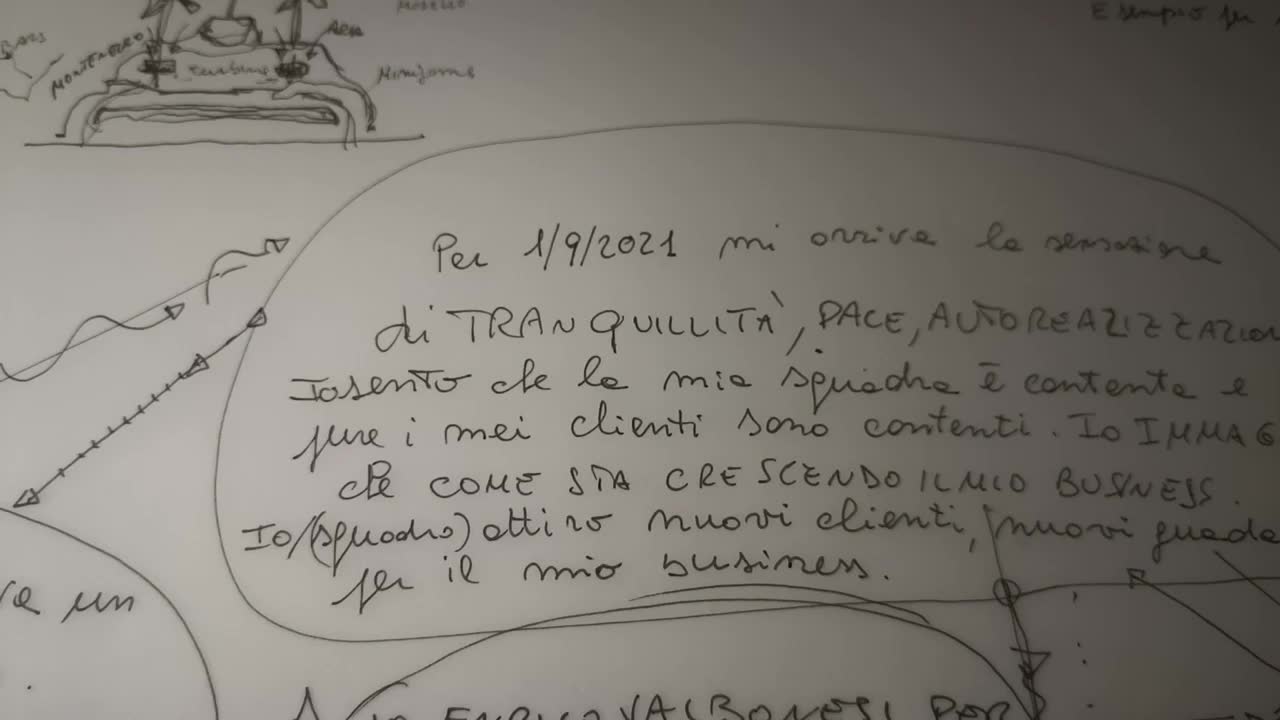 MONTENEGRO
ARIA
Esempio per
Per 1/9/2021 mi arriva la sensazione
di TRANQUILLITÀ, PACE, AUTOREAZIZZAZION
Io sento che la mia squadra è contenta e
pure i mei clienti sono contenti. Io IMMAG
che COME STA CRESCENDO IL MIO BUSINESS.
Io/(squadra) attiro nuovi clienti, nuovi guada
per il mio business.
un
ENRICO VALBONESI PER